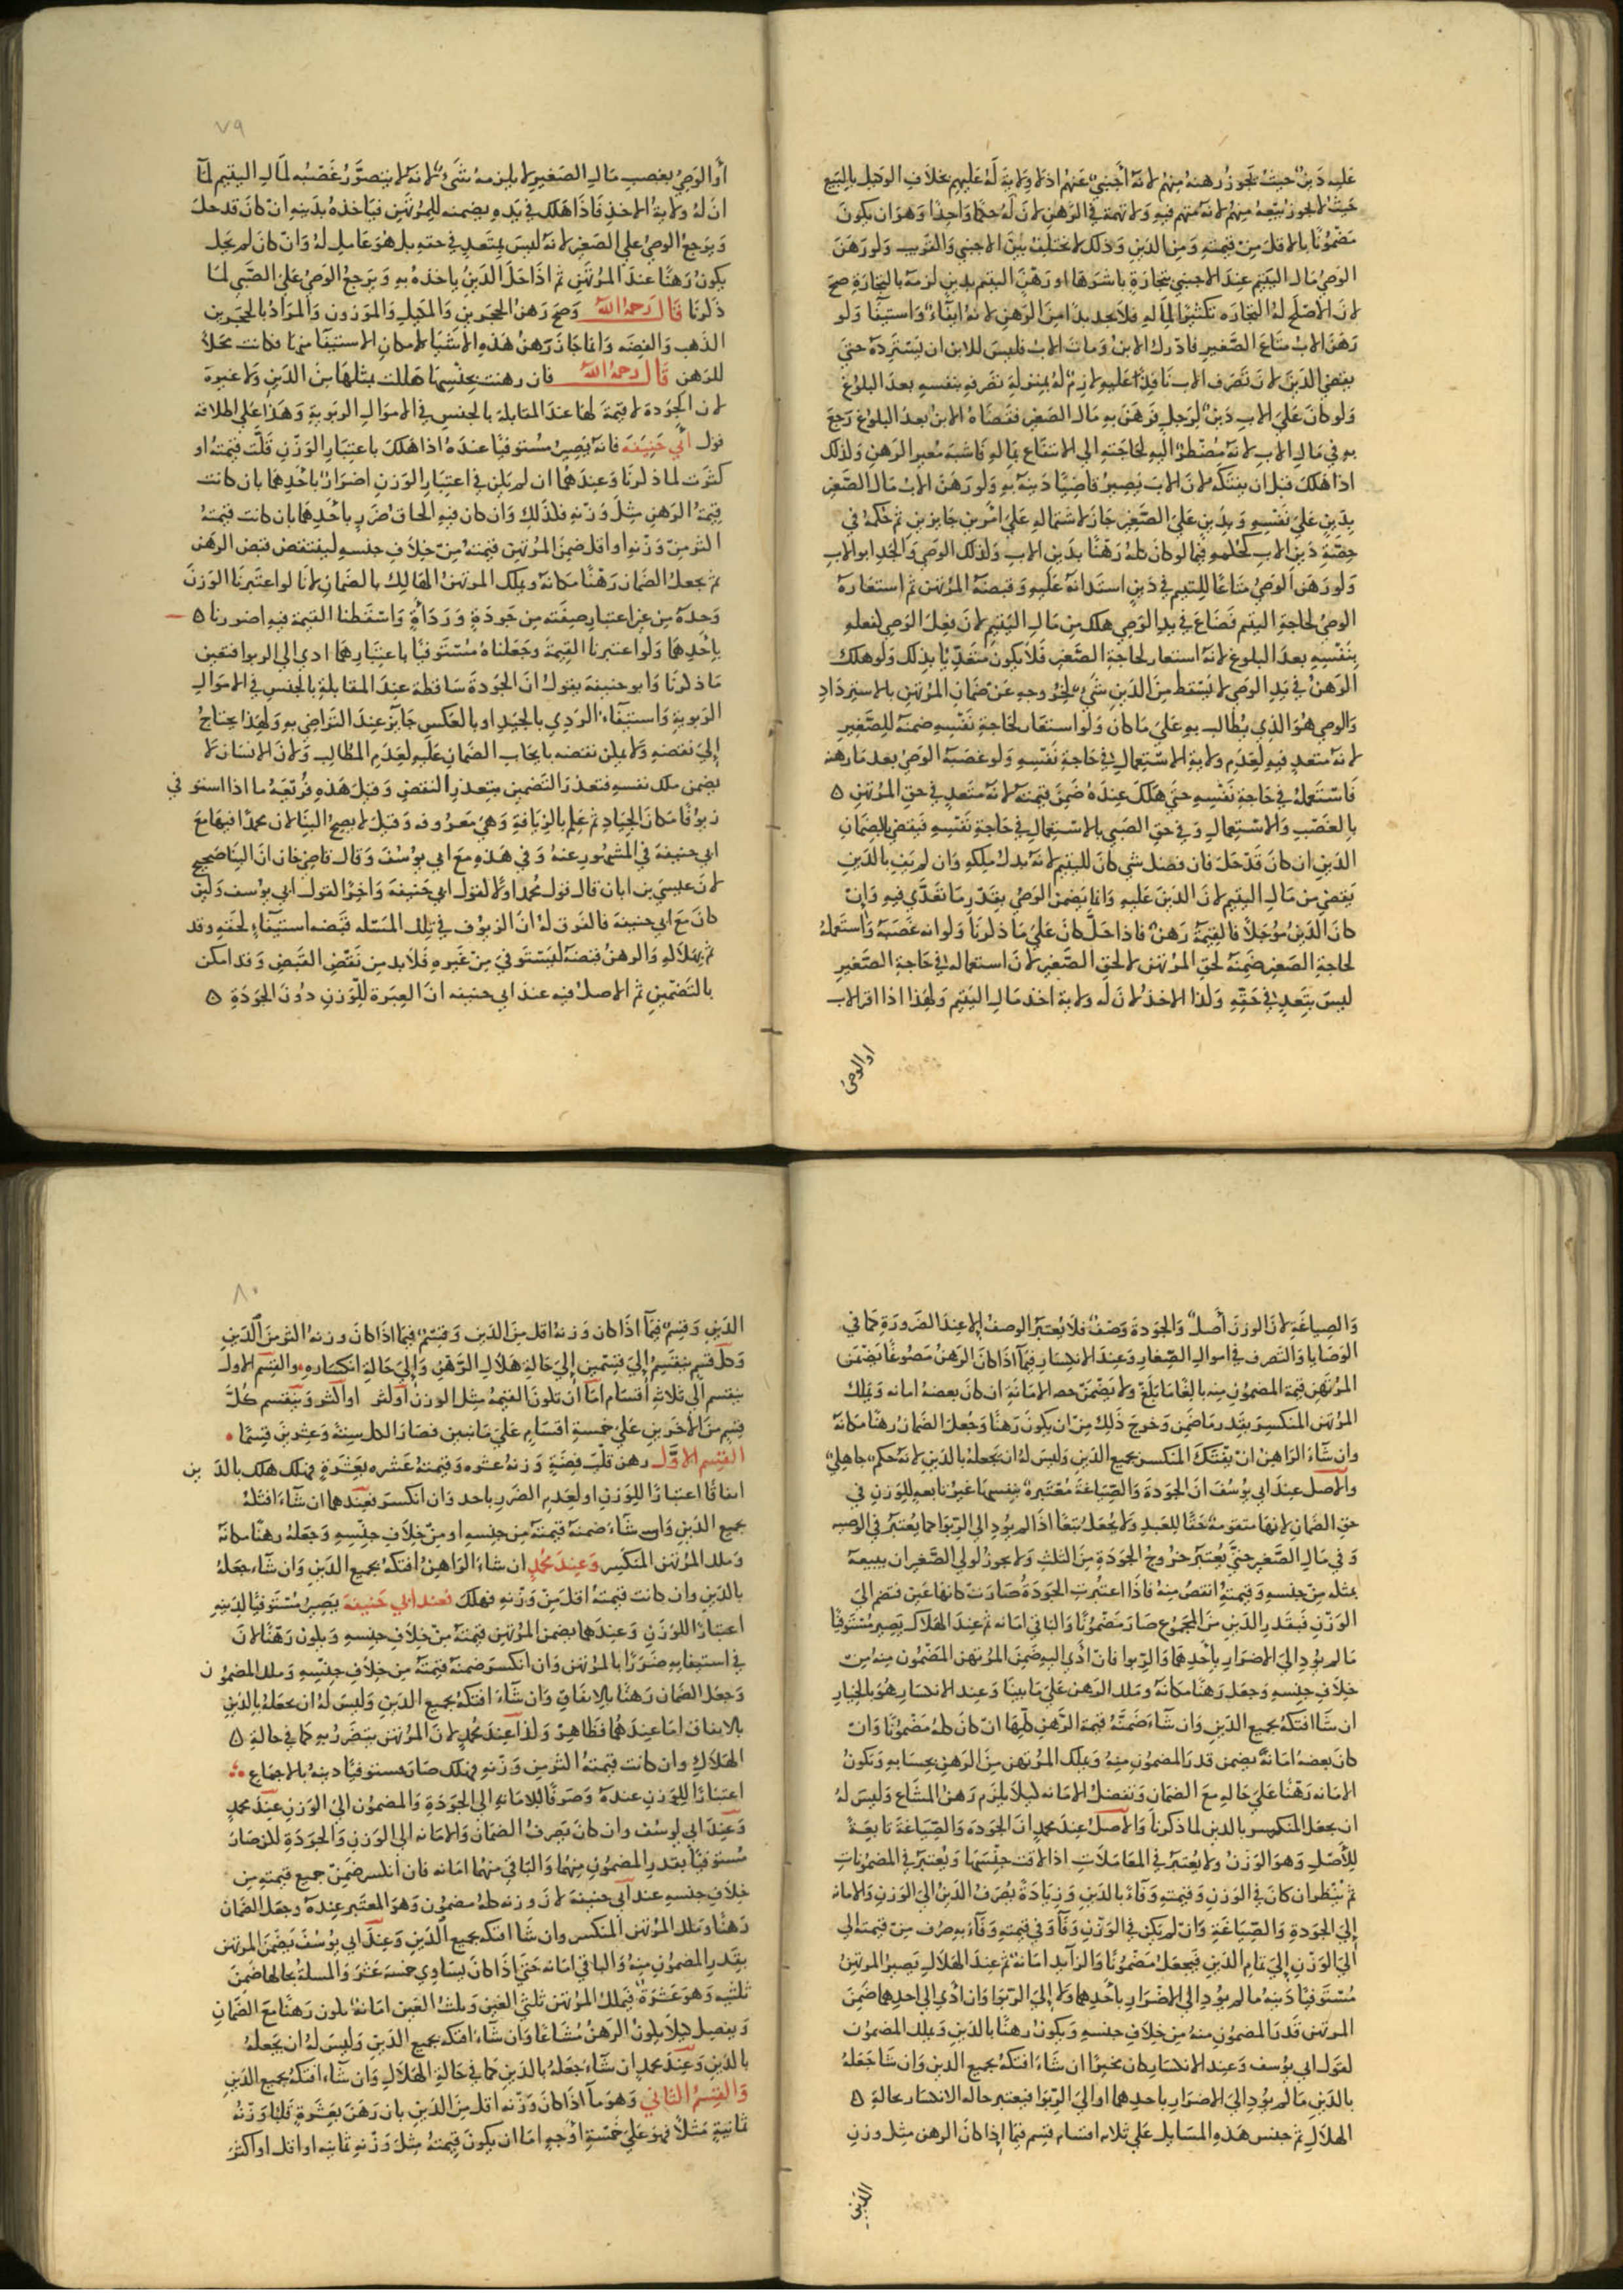 عليه دين حيث يجوز رهنه منهم لانه اجنبي عنهم اذ لا ولاية له عليهم بخلاف الوكيل بالبيع
حيث لا يجوز بيعه منهم لانه متهم فيه ولا تهمة في الرهن لان له حكما واحدا وهو ان يكون
مضمونا بالاقل من قيمته ومن الدين وذلك لا يختلف بين الاجنبي والقريب ولو رهن
الوصي مال اليتيم عند الاجنبي بتجارة باشرها او رهن اليتيم بدين لزمه بالتجارة صح
لان الاصلح له التجارة تكثيرا لماله فلا يجد بدا من الرهن لانه ايفاء واستيفا ولو
رهن الاب متاع الصغير فادرك الابن ومات الاب فليس للابن ان يسترده حتى
يقضي الدين لان تصرف الاب نافذا عليه لازم له بمنزلة تصرفه بنفسه بعد البلوغ
ولو كان على الاب دين لرجل فرهن به مال الصغير فقضاه الابن بعد البلوغ رجع
به في مال الاب لانه مضطر اليه لحاجته الي الانتفاع بماله فاشبه معير الرهن وكذلك
اذا هلك قبل ان يفتكه لان الاب يصير قاضيا دينه به ولو رهن الاب مال الصغير
بدين علي نفسه وبدين علي الصغير جاز لاشتماله علي امرين جايزين ثم حكمه في
حصة دين الاب كحكمه فيما لو كان كله رهنا بدين الاب وكذلك الوصي والجد ابو الاب
ولو رهن الوصي متاعا لليتيم في دين استدانه عليه وقبضه المرتهن ثم استعاره
الوصي لحاجة اليتيم فضاع في يد الوصي هلك من مال اليتيم لان فعل الوصي كفعله
بنفسه بعد البلوغ لانه استعار لحاجة الصغير فلا يكون متعديا بذلك ولو هلك
الرهن في يد الوصي لا يسقط من الدين شيء لخروجه عن ضمان المرتهن بالاسترداد
والوصي هو الذي يطالب به علي ما كان ولو استعار لحاجة نفسه ضمنه للصغير
لانه متعد فيه لعدم ولاية الاستعمال في حاجة نفسه ولو غصبه الوصي بعد ما رهنه
فاستعمله في حاجة نفسه حتي هلك عنده ضمن قيمته لانه متعد في حق المرتهن ه
بالغصب والاستعمال وفي حق الصبي بالاستعمال في حاجة نفسه فيقضي بالضمان
الدين ان كان قد حل فان فضل شي كان لليتيم لانه بدل ملكه وان لم يف بالدين
يقضي من مال اليتيم لان الدين عليه وانما يضمن الوصي بقدر ما تعدي فيه وان
كان الدين موجلا فالقيمة رهن فاذا حل كان علي ما ذكرنا ولو انه غصبه واستعمله
لحاجة الصغير ضمنه لحق المرتهن لا لحق الصغير لان استعماله في حاجة الصغير
ليس بتعد في حقه وكذا الاخذ لان له ولاية اخذ مال اليتيم ولهذا اذا اقر الاب
او الوصي
٧٩
أو الوصي بغصب مال الصغير لا يلزمه شيء لانه لا يتصور غصبه لمال اليتيم لما
ان له ولاية الاخذ فاذا هلك في يده يضمنه للمرتهن فياخذه بدينه ان كان قد حل
ويرجع الوصي علي الصغير لانه ليس بمتعد في حقه بل هو عامل له وان كان لم يحل
يكون رهنا عند المرتهن ثم اذا حل الدين ياخذه به ويرجع الوصي على الصبي لما
ذكرنا قال رحمه الله وصح رهن الحجرين والمكيل والموزون والمراد بالحجرين
الذهب والفضه وانما جاز رهن هذه الاشيا لامكان الاستيفا منها فكانت محلا
للرهن قال رحمه الله فان رهنت بجنسها هلكت بمثلها من الدين ولا عبرة
لان الجودة لا قيمة لها عند المقابلة بالجنس في الاموال الربوية وهذا علي اطلاقه
قول ابي حنيفه فانه يصير مستوفيا عنده اذا هلك باعتبار الوزن قلت قيمته او
كثرت لما ذكرنا وعندهما ان لم يكن في اعتبار الوزن اضرار باحدهما بان كانت
قيمة الرهن مثل وزنه فكذلك وان كان فيه الحاق ضرر باحدهما بان كانت قيمته
اكثر من وزنه او اقل ضمن المرتهن قيمته من خلاف جنسه لينتقض قبض الرهن
ثم يجعل الضمان رهنا مكانه ويملك المرتهن الهالك بالضمان لانا لو اعتبرنا الوزن
وحده من غير اعتبار صفته من جودة ورداة واسقطنا القيمة فيه اضررنا ه
باحدهما ولو اعتبرنا القيمة وجعلناه مستوفيا باعتبارهما ادي الي الربوا فتعين
ما ذكرنا وابو حنيفة يقول ان الجودة ساقطة عند المقابلة بالجنس في الاموال
الربوية واستيفاء الردي بالجيد او بالعكس جايز عند التراضي به ولهذا يحتاج
إلي نقضه ولا يمكن نقضه بايجاب الضمان عليه لعدم المطالب ولان الانسان لا
يضمن ملك نفسه فتعذر التضمين بتعذر النقض وقيل هذه فريعة ما اذا استو في
زيوفا مكان الجياد ثم علم بالزيافة وهي معروفه وقيل لا يصح البنا لان محمدا فيها مع
ابي حنيفة في المشهور عنه وفي هذه مع ابي يوسف وقال قاضي خان ان البنا صحيح
لان عيسي بن ابان قال قول محمد اولا كقول ابي حنيفة واخرا كقول ابي يوسف ولين
كان مع ابي حنيفة فالفرق له ان الزيوف في تلك المسئله قبضه استيفاء لحقه وقد
تم بهلاكه والرهن قبضه ليستوفي من غيره فلا بد من نقض القبض وقد امكن
بالتضمين ثم الاصل فيه عند ابي حنيفه ان العبرة للوزن دون الجودة ه
والصياغة لان الوزن أصل والجودة وصف فلا يعتبر الوصف إلا عند الضرورة كما في
الوصايا والتصرف في اموال الصغار وعند الانكسار فيما اذا كان الرهن مصوغا يضمن
المرتهن قيمة المضمون منه بالغا ما بلغ ولا يضمن حصه الامانة ان كان بعضه امانه ويملك
المرتهن المنكسر بقدر ما ضمن وخرج ذلك من ان يكون رهنا وجعل الضمان رهنا مكانه
وان شاء الراهن ان يفتك المنكسر بجميع الدين وليس له ان يجعله بالدين لانه حكم جاهلي
والاصل عند ابي يوسف ان الجودة والصياغة معتبرة بنفسها غير تابعه للوزن في
حق الضمان لانها متقومة حقا للعبد ولا يجعل تبعا اذا لم يود الي الربوا كما يعتبر في الوصيه
وفي مال الصغير حتي يعتبر خروج الجودة من الثلث ولا يجوز لولي الصغير ان يبيعه
بمثله من جنسه وقيمته انقص منه فاذا اعتبرت الجودة صارت كانها عين فتضم الي
الوزن فبقدر الدين من المجموع صار مضمونا والباقي امانه ثم عند الهلاك يصير مستوفيا
ما لم يود الي الاضرار باحدهما والربوا فان ادي اليه ضمن المرتهن المضمون منه من
خلاف جنسه وجعل رهنا مكانه وملك الرهن علي ما بينا وعند الانكسار هو بالخيار
ان شا افتكه بجميع الدين وان شاء ضمنه قيمة الرهن كلها ان كان كله مضمونا وان
كان بعضه امانة يضمن قدر المضمون منه ويملك المرتهن من الرهن بحسابه وتكون
الامانه رهنا علي حاله مع الضمان وتفصل الامانه ليلا يلزم رهن المشاع وليس له
ان يجعل المنكسر بالدين لما ذكرنا والاصل عند محمد ان الجودة والصياغة تابعة
للأصل وهو الوزن ولا يعتبر في المعاملات اذا لاقت جنسها ويعتبر في المضمونات
ثم ينظر ان كان في الوزن وقيمته وفاء بالدين وزيادة يصرف الدين الي الوزن والامانه
إلي الجودة والصياغة وان لم يكن في الوزن وفا وفي قيمته وفاء به صرف من قيمته الي
الي الوزن إلي تمام الدين فيجعل مضمونا والزايد امانة ثم عند الهلاك يصير المرتهن
مستوفيا دينه ما لم يود الي الاضرار باحدهما ولا إلي الربوا وان ادي الي احدهما ضمن
المرتهن قدر المضمون منه من خلاف جنسه ويكون رهنا بالدين ويملك المضمون
كقول ابي يوسف وعند الانكسار كان مخيرا ان شاء افتكه بجميع الدين وان شا جعله
بالدين ما لم يود إلي الاضرار باحدهما او الي الربوا فيعتبر حاله الانكسار بحالة ه
الهلاك ثم جنس هذه المسايل علي ثلاثه اقسام قسم فيما إذا كان الرهن مثل وزن
الدين
٨٠
الدين وقسم فيما اذا كان وزنه اقل من الدين وقسم فيما اذا كان وزنه اكثر من الدين
وكل قسم ينقسم إلي قسمين إلي حالة هلاك الرهن وإلي حالة انكساره والقسم الاول
ينقسم الي ثلاثة أقسام اما ان تكون القيمة مثل الوزن او اقل او اكثر وينقسم كل
قسم من الاخرين علي خمسة اقسام علي ما نبين فصار الكل ستة وعشرين قسما
القسم الاول رهن قلب فضة وزنه عشره وقيمته عشره بعشرة فهلك هلك بالد ين
اتفاقا اعتبارا للوزن او لعدم الضرر باحد وان انكسر فعندهما ان شاء افتكه
بجميع الدين وان شاء ضمنه قيمته من جنسه او من خلاف جنسه وجعله رهنا مكانه
وملك المرتهن المنكسر وعند محمد ان شاء الراهن افتكه بجميع الدين وان شاء جعله
بالدين وان كانت قيمته اقل من وزنه فهلك فعند ابي حنيفة يصير مستوفيا لدينه
اعتبارا للوزن وعندهما يضمن المرتهن قيمته من خلاف جنسه ويكون رهنا لان
في استيفايه ضررا بالمرتهن وان انكسر ضمنه قيمته من خلاف جنسه وملك المضمو ن
وجعل الضمان رهنا بالاتفاق وان شاء افتكه بجميع الدين وليس له ان يجعله بالدين
بالاتفاق اما عندهما فظاهر وكذا عند محمد لان المرتهن يتضرر به كما في حالة ه
الهلاك وان كانت قيمته اكثر من وزنه فهلك صار مستوفيا دينه بالاجماع
اعتبارا للوزن عنده وصرفا للامانه الي الجودة والمضمون الي الوزن عند محمد
وعند ابي يوسف وان كان يصرف الضمان والامانه الي الوزن والجودة لكن صار
مستوفيا بقدر المضمون منهما والباقي منهما امانه فان انكسر ضمن جميع قيمته من
خلاف جنسه عند ابي حنيفة لان وزنه كله مضمون وهو المعتبر عنده وجعل الضمان
رهنا وملك المرتهن المنكسر وان شا افتكه بجميع الدين وعند ابي يوسف يضمن المرتهن
بقدر المضمون منه والباقي امانه حتي اذا كان يساوي خمسة عشر والمسئلة بحالها ضمن
ثلثيه وهو عشرة فيملك المرتهن ثلثي العين وثلث العين امانة يكون رهنا مع الضمان
ويفصل ليلا يكون الرهن مشاعا وان شاء افتكه بجميع الدين وليس له ان يجعله
بالدين وعند محمد ان شاء جعله بالدين كما في حالة الهلاك وان شاء افتكه بجميع الدين
والقسم الثاني وهو ما اذا كان وزنه اقل من الدين بان رهن بعشرة قلبا وزنه
ثمانية مثلا فهو علي خمسة أوجه اما ان يكون قيمته مثل وزنه ثمانيه او اقل او اكثر